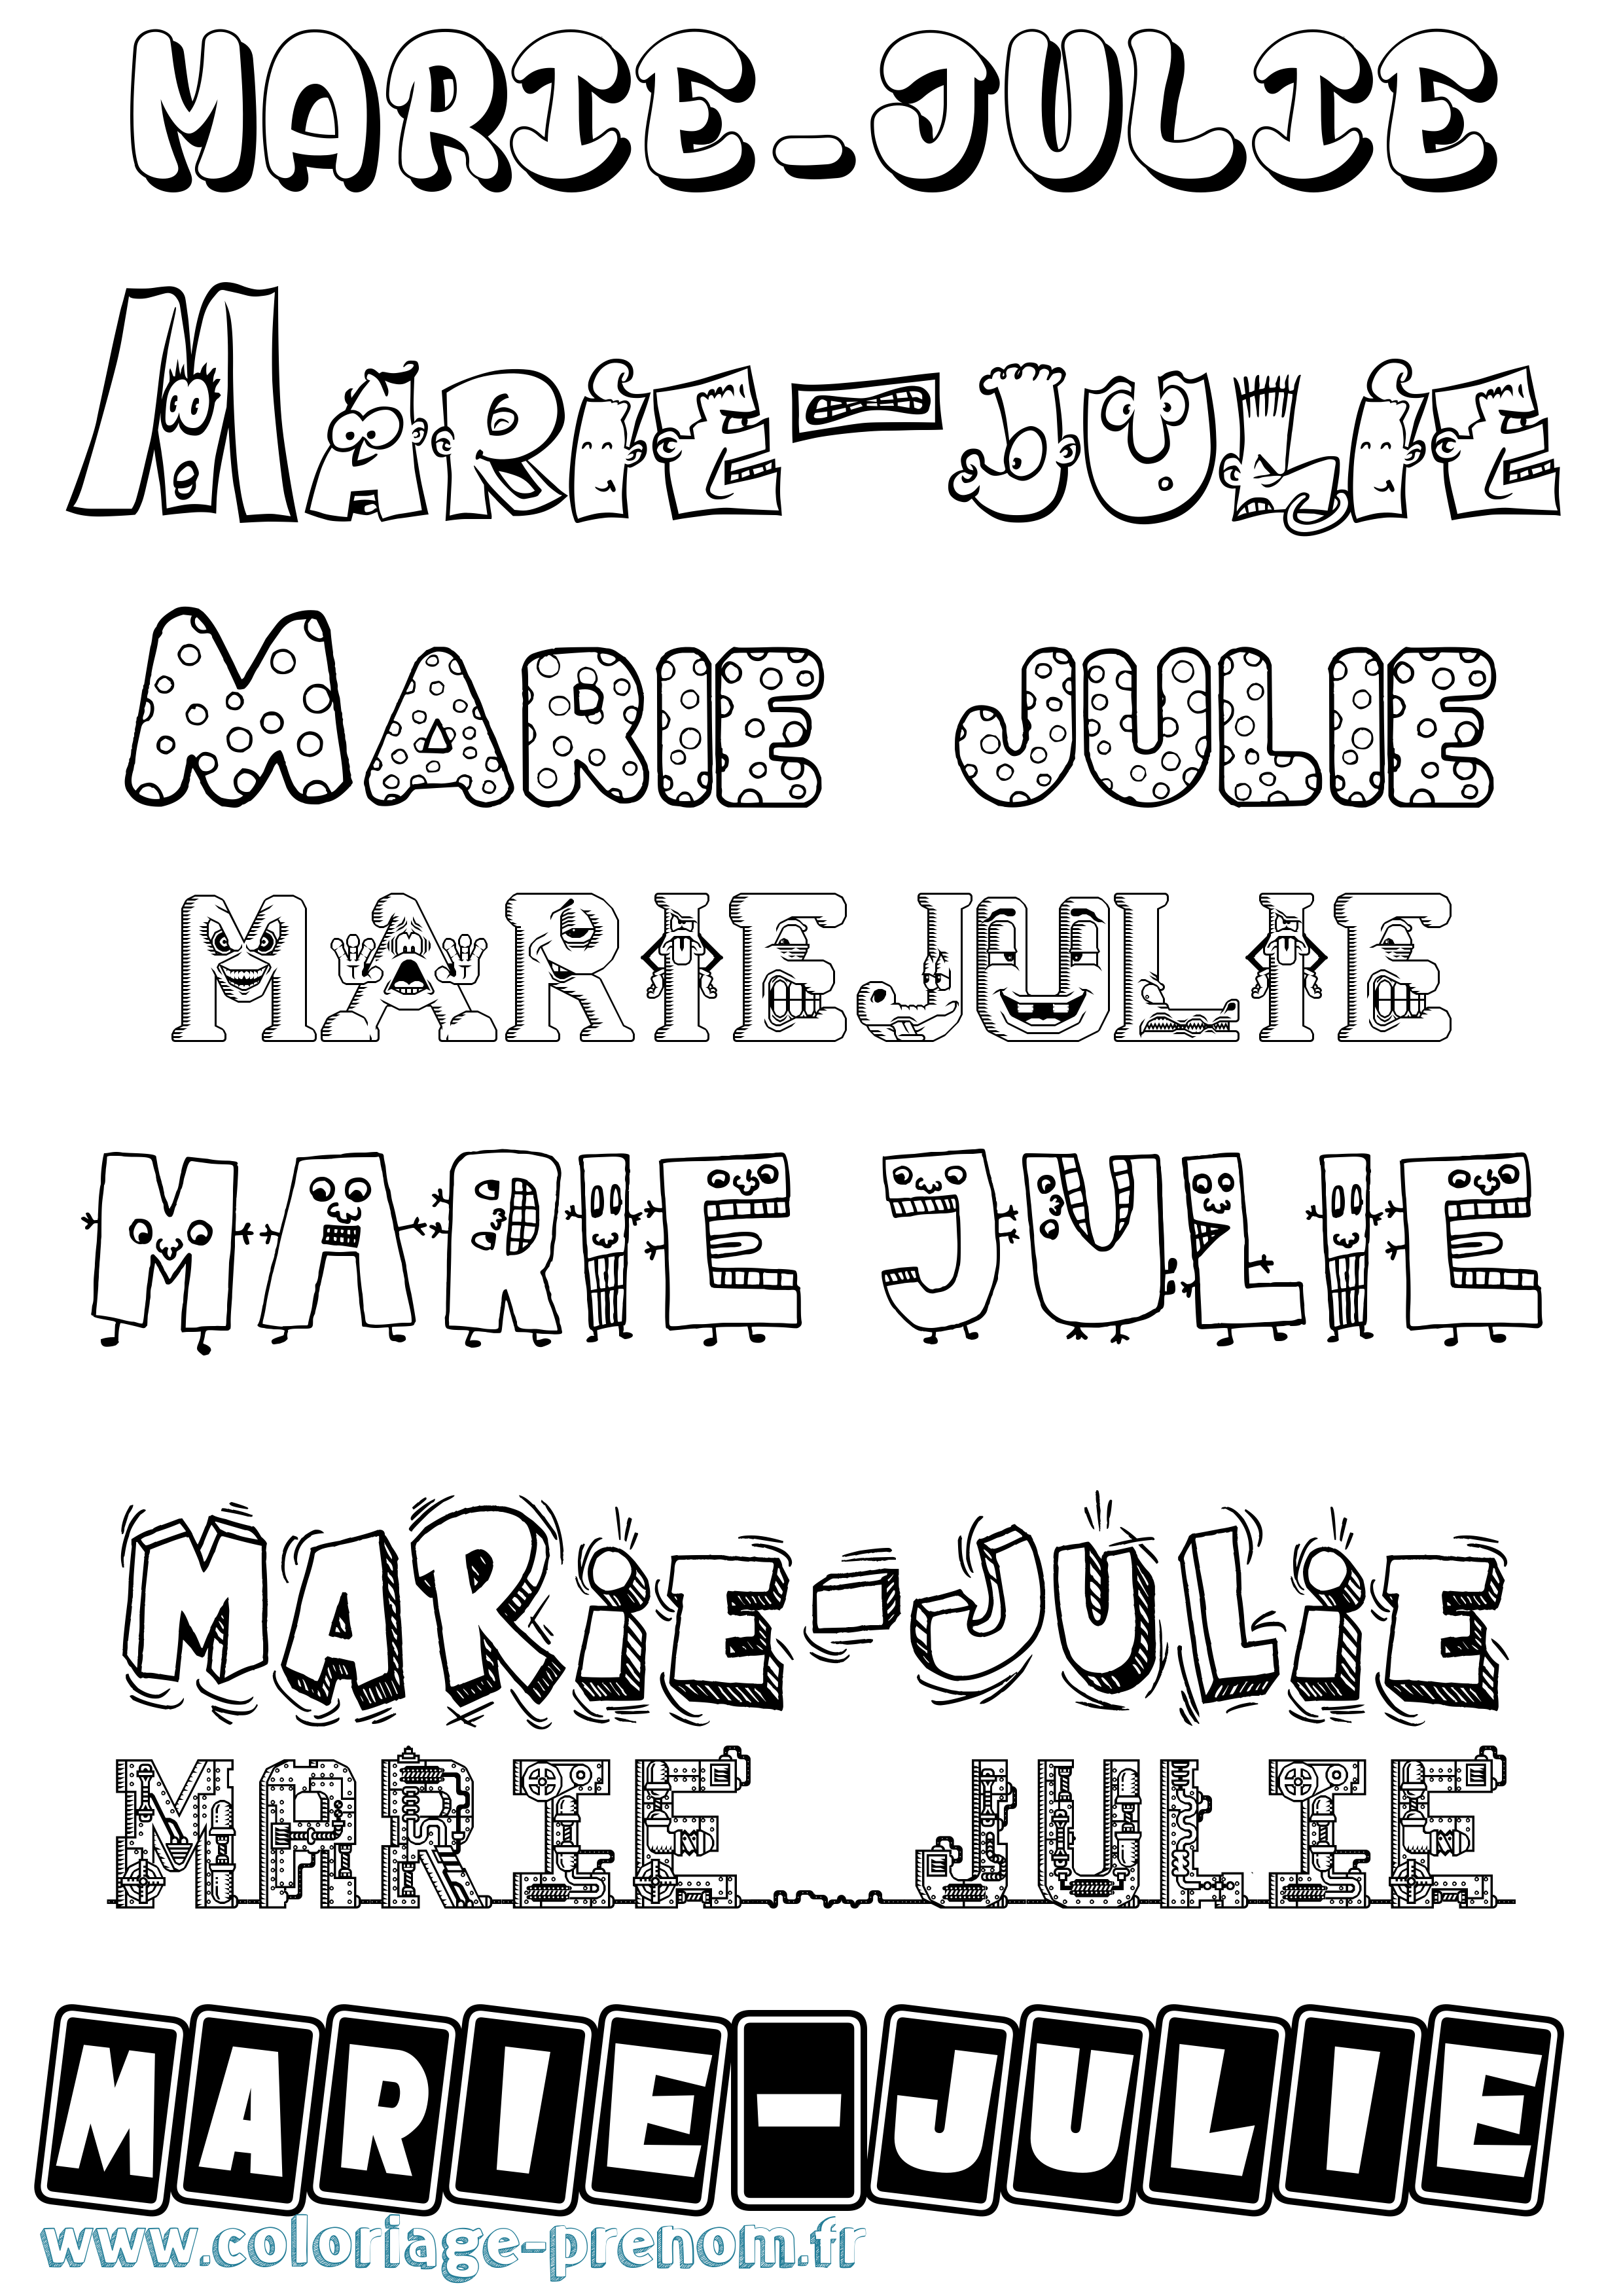 MARIE-JULIE
MARIE-JULIE
MARIE JULIE
MARIEJULIE
MARIE JULIE
MARiE-JULiE
MARIE JULIE
MARIE-JULIE
www.coloriage-prenom.fr